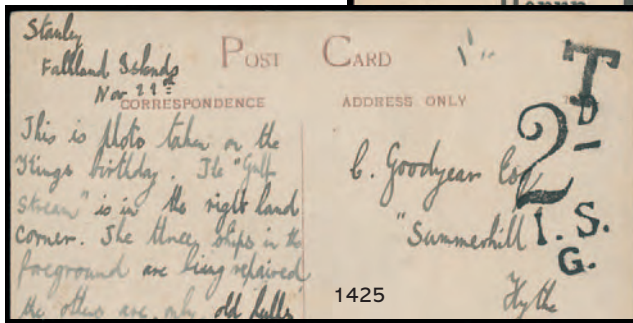 Stanley
Falkland Islands
Nov 22nd
POST CARD
CORRESPONDENCE
ADDRESS ONLY
This is Photo taken on the
Kings birthday. The "Gulf
stream" is in the right hand
corner. The three ships in the
foreground are being repaired
the others are only old hulls
C. Goodyear Esq
"Summerhill
Hythe
T
2D
I.S.
G.
1425